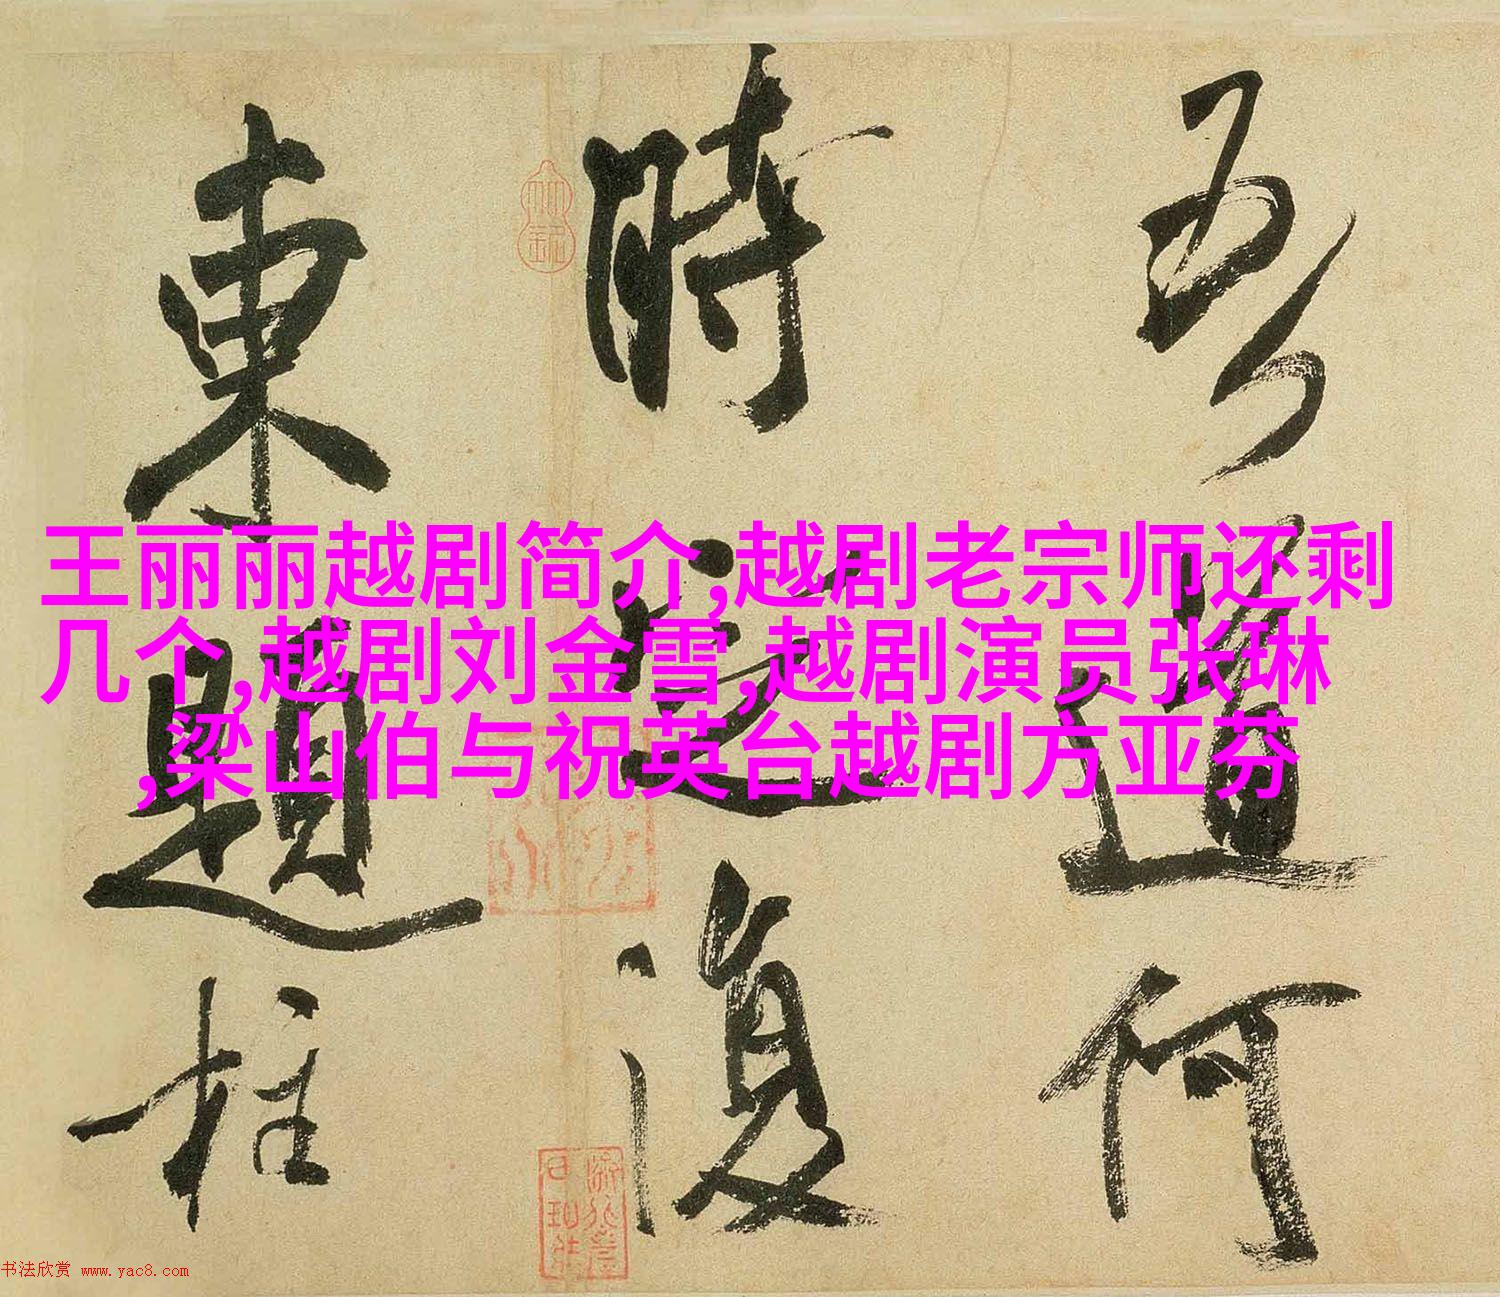 吾道何
時定復
東題柱
王丽丽越剧简介,越剧老宗师还剩
几个,越剧刘金雪,越剧演员张琳
,梁山伯与祝英台越剧方亚芬
书法欣赏 www.yac8.com